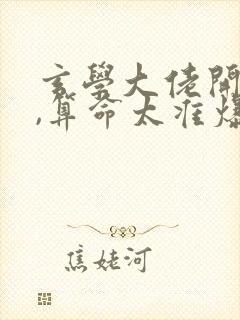 玄學大佬開
,算命太准爆
焦姥河